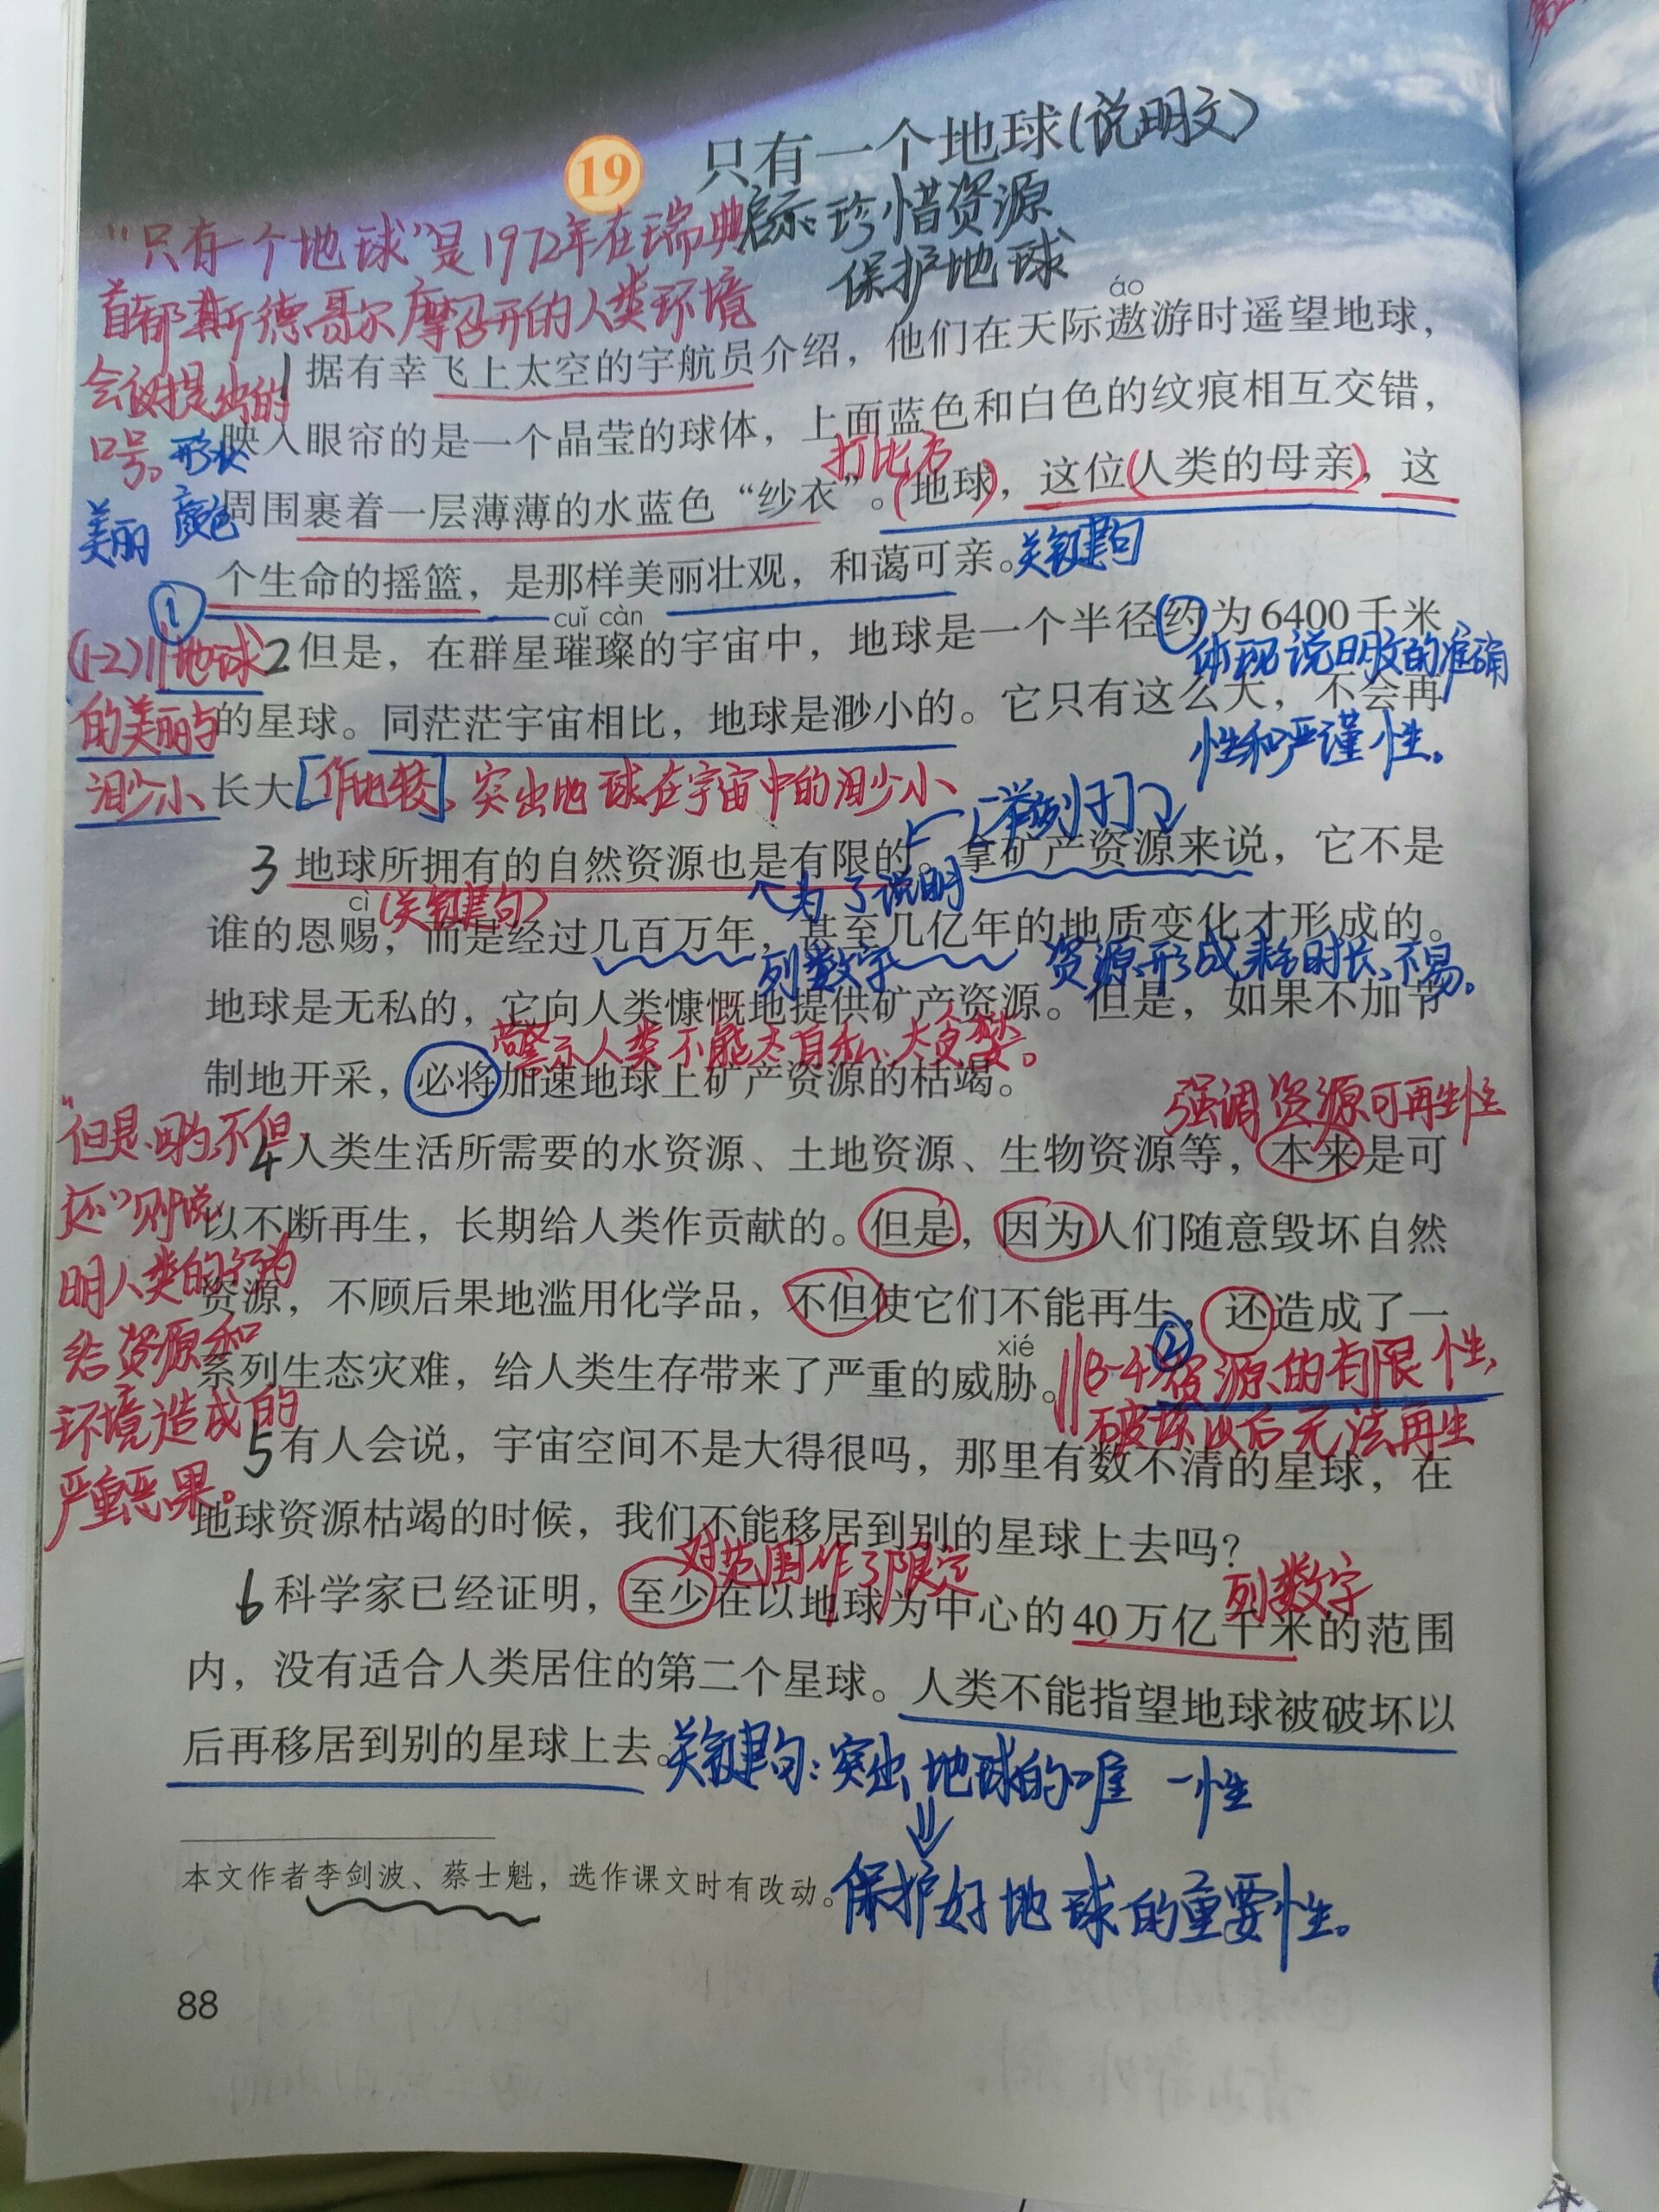 19 只有一个地球(说明文)
启示:珍惜资源
保护地球
“只有一个地球”是1972年在瑞典
首都斯德哥尔摩召开的人类环境
会议提出的
口号。
áo
1据有幸飞上太空的宇航员介绍，他们在天际遨游时遥望地球，
映入眼帘的是一个晶莹的球体，上面蓝色和白色的纹痕相互交错，
形状
打比方
周围裹着一层薄薄的水蓝色“纱衣”。(地球)，这位(人类的母亲)，这
美丽 颜色
个生命的摇篮，是那样美丽壮观，和蔼可亲。关键句
①
cuǐ càn
2但是，在群星璀璨的宇宙中，地球是一个半径约为6400千米
体现说明文的准确
的星球。同茫茫宇宙相比，地球是渺小的。它只有这么大，不会再
性和严谨性。
长大[作比较]。突出地球在宇宙中的渺小
(1-2)∥地球
的美丽与
渺小
[举例子]
3 地球所拥有的自然资源也是有限的。拿矿产资源来说，它不是
为了说明
cì
(关键句)
谁的恩赐，而是经过几百万年，甚至几亿年的地质变化才形成的。
列数字 资源形成耗时长、不易。
地球是无私的，它向人类慷慨地提供矿产资源。但是，如果不加节
警示人类不能太自私、太贪婪。
制地开采，必将加速地球上矿产资源的枯竭。
强调资源可再生性
4人类生活所需要的水资源、土地资源、生物资源等，本来是可
以不断再生，长期给人类作贡献的。但是，因为人们随意毁坏自然
资源，不顾后果地滥用化学品，不但使它们不能再生，还造成了一
xié
系列生态灾难，给人类生存带来了严重的威胁。
∥(3-4)②资源的有限性,
破坏以后无法再生
“但是、因为、不但、
还”则说
明人类的行为
给资源和
环境造成的
严重恶果。
5有人会说，宇宙空间不是大得很吗，那里有数不清的星球，在
地球资源枯竭的时候，我们不能移居到别的星球上去吗?
对范围作了限定
列数字
6科学家已经证明，至少在以地球为中心的40万亿千米的范围
内，没有适合人类居住的第二个星球。人类不能指望地球被破坏以
后再移居到别的星球上去。关键句:突出地球的唯一性
本文作者李剑波、蔡士魁，选作课文时有改动。
保护好地球的重要性。
88